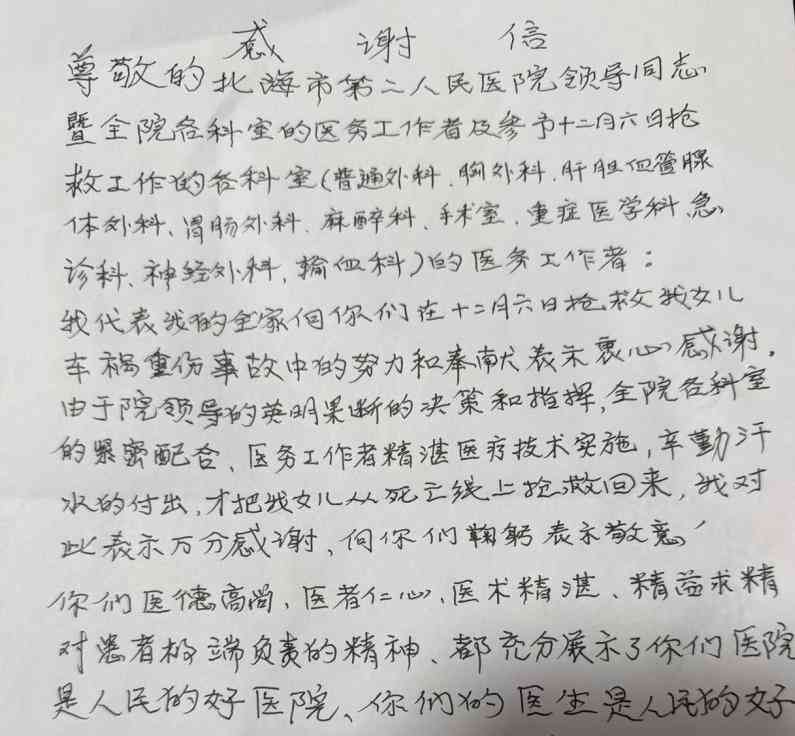 感谢信
尊敬的北海市第二人民医院领导同志
暨全院各科室的医务工作者及参予十二月六日抢
救工作的各科室(普通外科、胸外科、肝胆血管腺
体外科、胃肠外科、麻醉科、手术室、重症医学科、急
诊科、神经外科、输血科)的医务工作者:
我代表我的全家向你们在十二月六日抢救我女儿
车祸重伤事故中的努力和奉献表示衷心感谢。
由于院领导的英明果断的决策和指挥,全院各科室
的紧密配合、医务工作者精湛医疗技术实施,辛勤汗
水的付出,才把我女儿从死亡线上抢救回来,我对
此表示万分感谢、向你们鞠躬表示敬意!
你们医德高尚、医者仁心、医术精湛、精益求精
对患者极端负责的精神、都充分展示了你们医院
是人民的好医院、你们的医生是人民的好